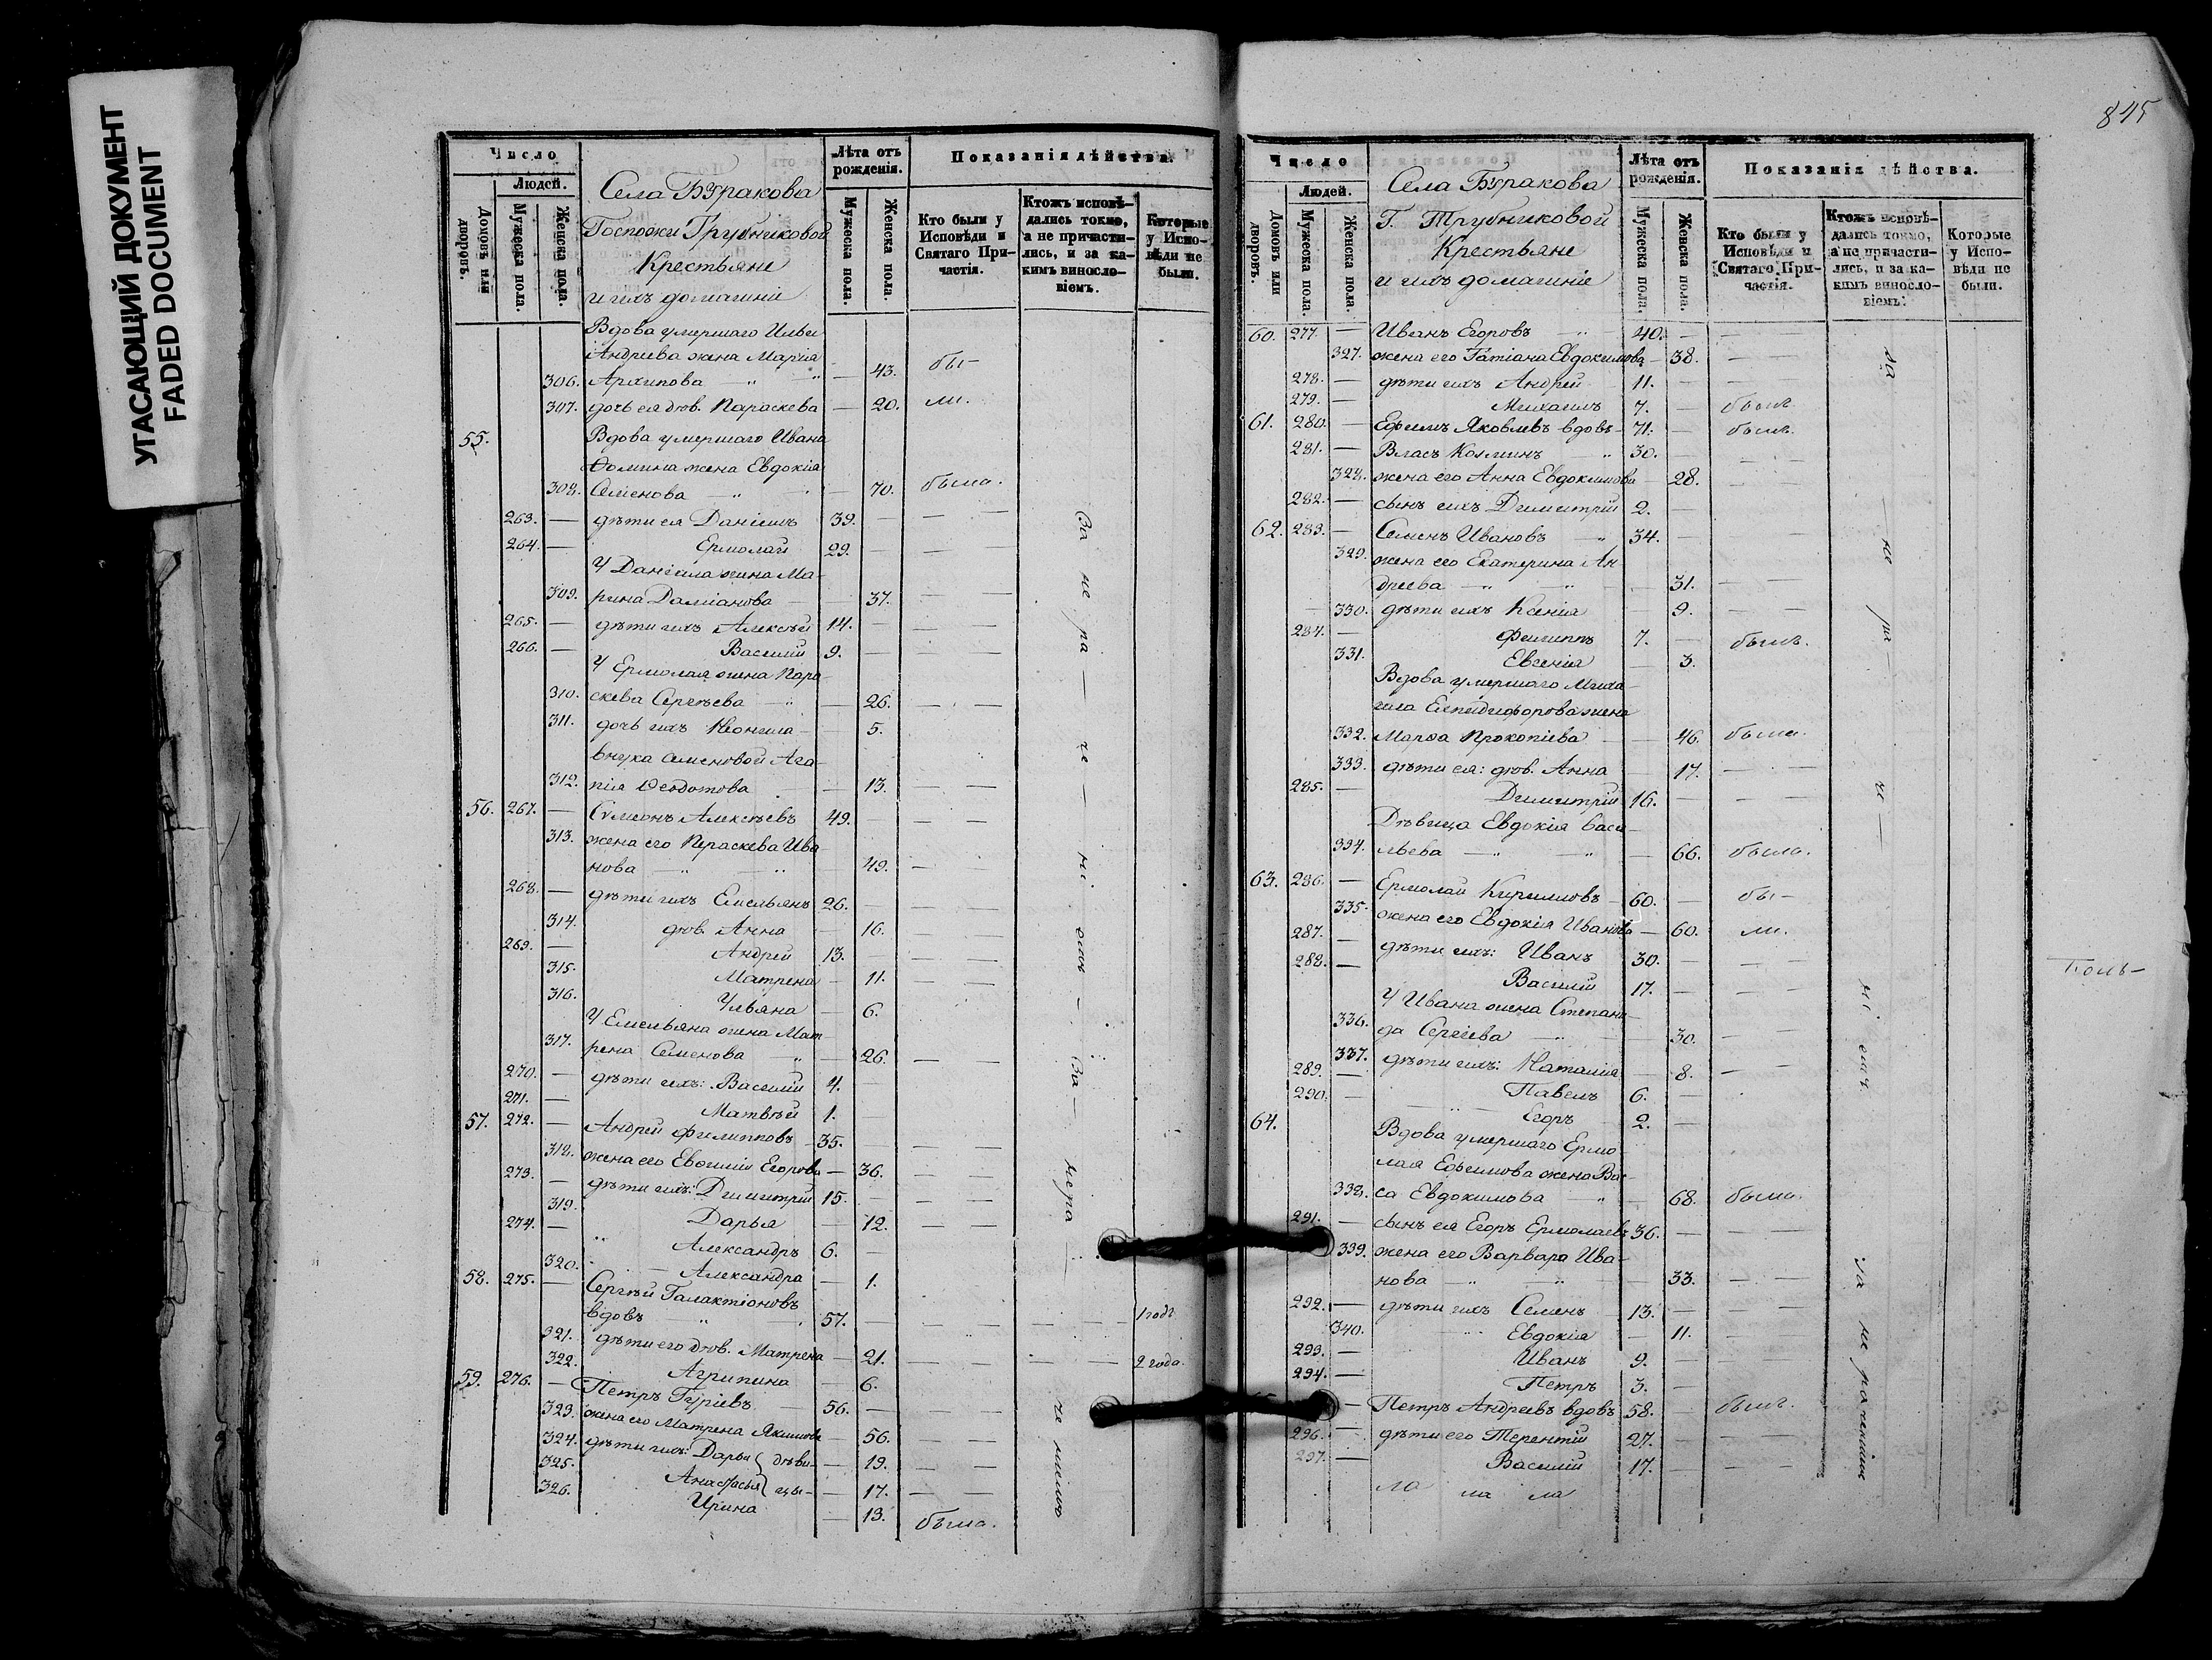 УГАСАЮЩИЙ ДОКУМЕНТ
FADED DOCUMENT
Число
Людей.
Домовъ или дворовъ.
Мужеска пола.
Женска пола.
Села Буракова
Госпожи Трубниковой
Крестьяне
и ихъ домашніе
Лѣта отъ рожденія.
Мужеска пола.
Женска пола.
Показанія дѣйства.
Кто были у Исповѣди и Святаго Причастія.
Ктожъ исповѣ-
дались токмо,
а не причасти-
лись, и за ка-
кимъ винosло-
віемъ.
Которые
у Испо-
вѣди не
были.
Вдова умершаго Ильи
Андреева жена Марія
306. Архипова — 43. бы-
307. дочь ея дѣв. Параскева — 20. ли.
55. Вдова умершаго Ивана
Ѳомина жена Евдокія
308. Семенова — 70. была.
263. — дѣти ея Даніилъ 39. —
264. — Ермолай 29. —
У Даніила жена Ма-
309. рина Даміанова — 37. —
265. — дѣти ихъ Алексѣй 14. —
266. — Василій 9. —
У Ермолая жена Пара-
310. скева Сергѣева — 26. —
311. дочь ихъ Неонила — 5.
внука Семеновой Ага-
312. пія Ѳеодотова — 13. —
56. 267. — Сѵмеонъ Алексѣевъ 49. —
313. жена его Параскева Ива-
нова — 49. —
268. — дѣти ихъ Емельянъ 26. —
314. дѣв. Анна — 16. —
269. — Андрей 13. —
315. Матрена — 11. —
316. Ульяна — 6.
У Емельяна жена Мат-
317. рена Семенова — 26. —
270. — дѣти ихъ: Василій 4.
271. — Матвѣй 1.
57. 272. — Андрей Филипповъ 35. —
318. жена его Евѳимія Егорова — 36. —
273. — дѣти ихъ: Димитрій 15. —
319. Дарья — 12. —
274. — Александръ 6. —
320. Александра — 1.
58. 275. — Сергѣй Галактіоновъ
вдовъ 57. — 1 годъ
321. дѣти его дѣв. Матрена — 21. — 2 года.
322. Агрипина — 6.
59. 276. — Петръ Гуріевъ 56. —
323. жена его Матрена Якимова — 56. —
324. дѣти ихъ: Дарья } дѣви- — 19. —
325. Анастасья } цы- — 17. —
326. Ирина — 13. была.
845
Число
Людей.
Домовъ или дворовъ.
Мужеска пола.
Женска пола.
Села Буракова
Г. Трубниковой
Крестьяне
и ихъ домашніе
Лѣта отъ рожденія.
Мужеска пола.
Женска пола.
Показанія дѣйства.
Кто были у Исповѣди и Святаго Причастія.
Ктожъ исповѣ-
дались токмо,
а не причасти-
лись, и за ка-
кимъ винosло-
віемъ.
Которые
у Испо-
вѣди не
были.
60. 277. — Иванъ Егоровъ 40. —
327. жена его Татіана Евдокимова — 38. —
278. — дѣти ихъ Андрей 11. —
279. — Михаилъ 7. — былъ
61. 280. — Ефимъ Яковлевъ вдовъ 71. былъ.
281. — Власъ Козминъ 30. —
328. жена его Анна Евдокимова — 28. —
282. — сынъ ихъ Димитрій 2. —
62. 283. — Семенъ Ивановъ 34. —
329. жена его Екатерина Ан-
дреева — 31. —
330. дѣти ихъ Ксенія — 9. —
284. — Филиппъ 7. — былъ.
331. Евгенія — 3.
Вдова умершаго Миха-
ила Елпидифорова жена
332. Марѳа Прокопіева — 46. была.
333. дѣти ея: дѣв. Анна — 17. —
285. — Димитрій 16. —
Дѣвица Евдокія Васи-
334. льева — 66. была.
63. 286. — Ермолай Кириловъ 60. — бы-
335. жена его Евдокія Иванова — 60. ли.
287. — дѣти ихъ: Иванъ 30. —
288. — Василій 17. —
У Ивана жена Степани-
336. да Сергѣева — 30. —
337. дѣти ихъ: Наталія — 8. —
289. — Павелъ 6. —
290. — Егоръ 2. —
64. Вдова умершаго Ермо-
лая Ефимова жена Ва-
338. са Евдокимова — 68. была.
291. — сынъ ея Егоръ Ермолаевъ 36. —
339. жена его Варвара Ива-
нова — 33. —
292. — дѣти ихъ Семенъ 13. —
340. Евдокія — 11. —
293. — Иванъ 9. —
294. — Петръ 3. —
— Петръ Андреевъ вдовъ 58. былъ.
296. — дѣти его Терентій 27. —
297. — Василій 17. —